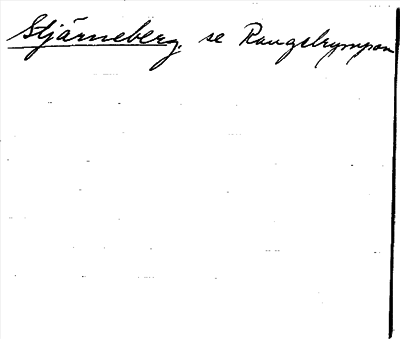 Stjärneberg, se Rangstrympan